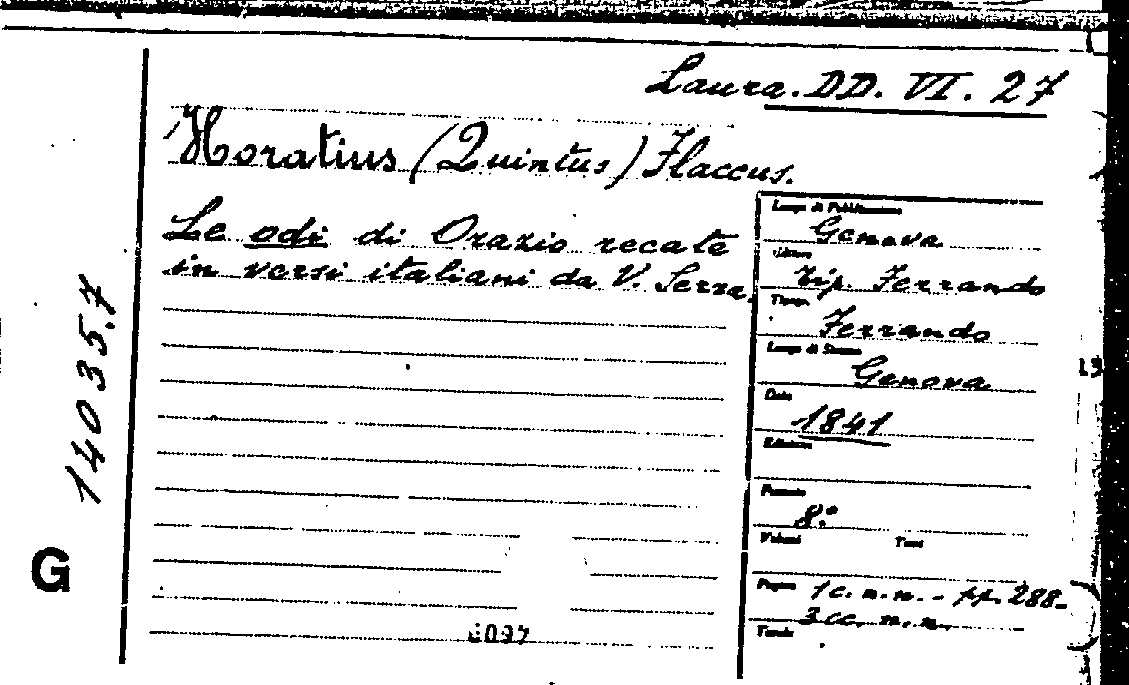 Laura. DD. VI. 27
Horatius (Quintus) Flaccus.
Le odi di Orazio recate
in versi italiani da V. Serra.
Luogo di Pubblicazione
Genova
Editore
Tip. Ferrando
Tipogr.
Ferrando
Luogo di Stampa
Genova
Data
1841
Edizione
Formato
8.°
Volumi Tomi
Pagine 1 c. n. n. - pp. 288-
3 cc. n. n.
Tavole
14035.7
G